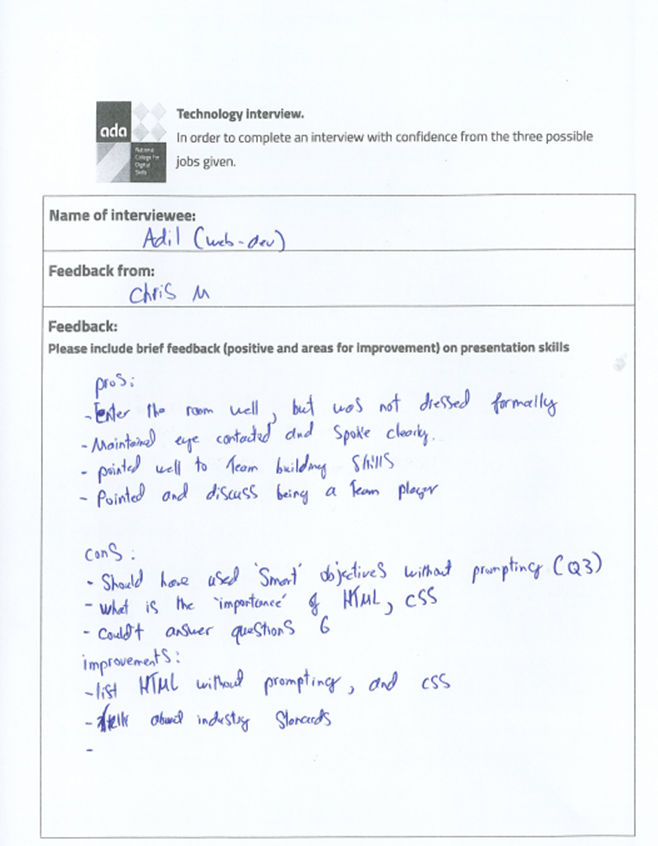 ada
National
College for
Digital
Skills
Technology Interview.
In order to complete an interview with confidence from the three possible
jobs given.
Name of interviewee:
Adil (web-dev)
Feedback from:
Chris M
Feedback:
Please include brief feedback (positive and areas for improvement) on presentation skills
pros:
-Enter the room well, but was not dressed formally
-Maintained eye contacted and Spoke clearly.
- pointed well to Team building Skills
- Pointed and discuss being a Team player
cons:
- Should have used 'Smart' objectives without prompting (Q3)
- What is the 'importance' of HTML, CSS
- Couldn't answer questions 6
improvements:
-list HTML without prompting, and CSS
- talk about industry Standards
-